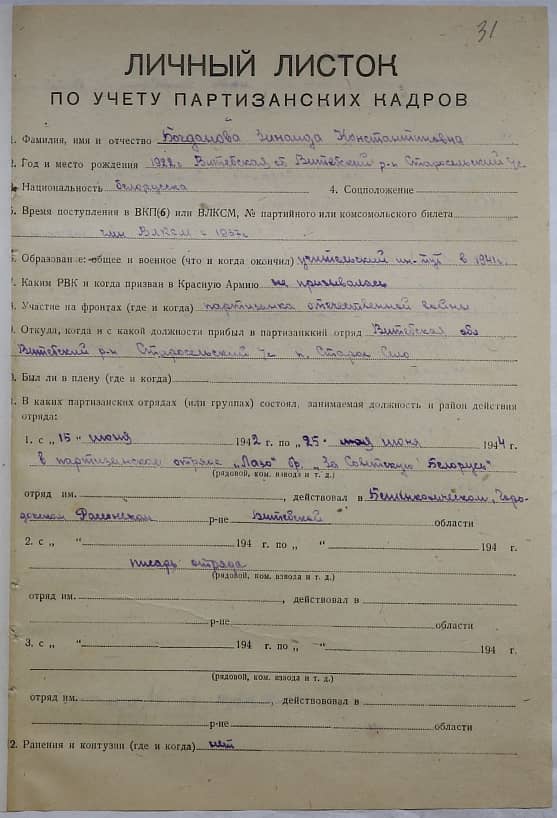 31
ЛИЧНЫЙ ЛИСТОК
ПО УЧЕТУ ПАРТИЗАНСКИХ КАДРОВ
1. Фамилия, имя и отчество Богданова Зинаида Константиновна
2. Год и место рождения 1922 г. Витебская об. Витебский р-н Старосельский с/с.
Национальность белорусска 4. Соцположение
5. Время поступления в ВКП(б) или ВЛКСМ, № партийного или комсомольского билета
член ВЛКСМ с 1937 г.
6. Образование: общее и военное (что и когда окончил) учительский ин-тут в 1941 г.
7. Каким РВК и когда призван в Красную Армию не призывалась
8. Участие на фронтах (где и когда) партизанка отечественной войны
9. Откуда, когда и с какой должности прибыл в партизанкий отряд Витебская обл
Витебский р-н Старосельский с/с п. Старое Село
0. Был ли в плену (где и когда)
1. В каких партизанских отрядах (или группах) состоял, занимаемая должность и район действия
отряда:
1. с „15" июня 1942 г. по „25" июня 1944 г.
в партизанском отряде „Лазо" бр. „За Советскую Белорусь"
(рядовой, ком. взвода и т. д.)
отряд им. , действовал в Бешенковическом, Горо-
докском Россонском р-не Витебской области
2. с „ " 194 г. по „ " 194 г.
писарь отряда
(рядовой, ком. взвода и т. д.)
отряд им. , действовал в
р-не области
3. с „ " 194 г. по „ " 194 г.
(рядовой, ком. взвода и т. д.)
отряд им. , действововал в
р-не области
2. Ранения и контузии (где и когда) нет